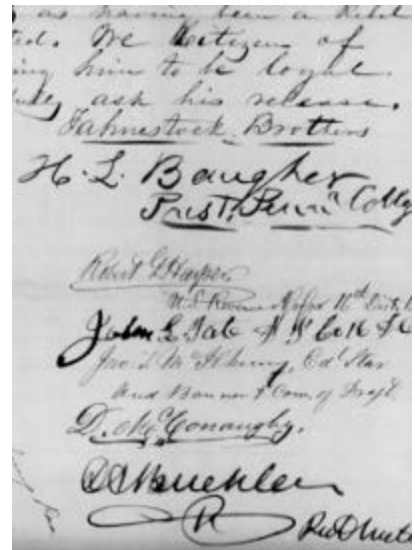 as having been a Rebel
We Citizens of
him to be loyal
ask his release.
Fahnestock Brothers
H. L. Baugher
Prest. Penna Colleg
Robert G Harper
U.S. Revenue 16th Dist.
John L Tate
Jno. T. McIlhinny, Ed. Star
and Banner & Com. of Draft
D. McConaughy.
Buehler
R